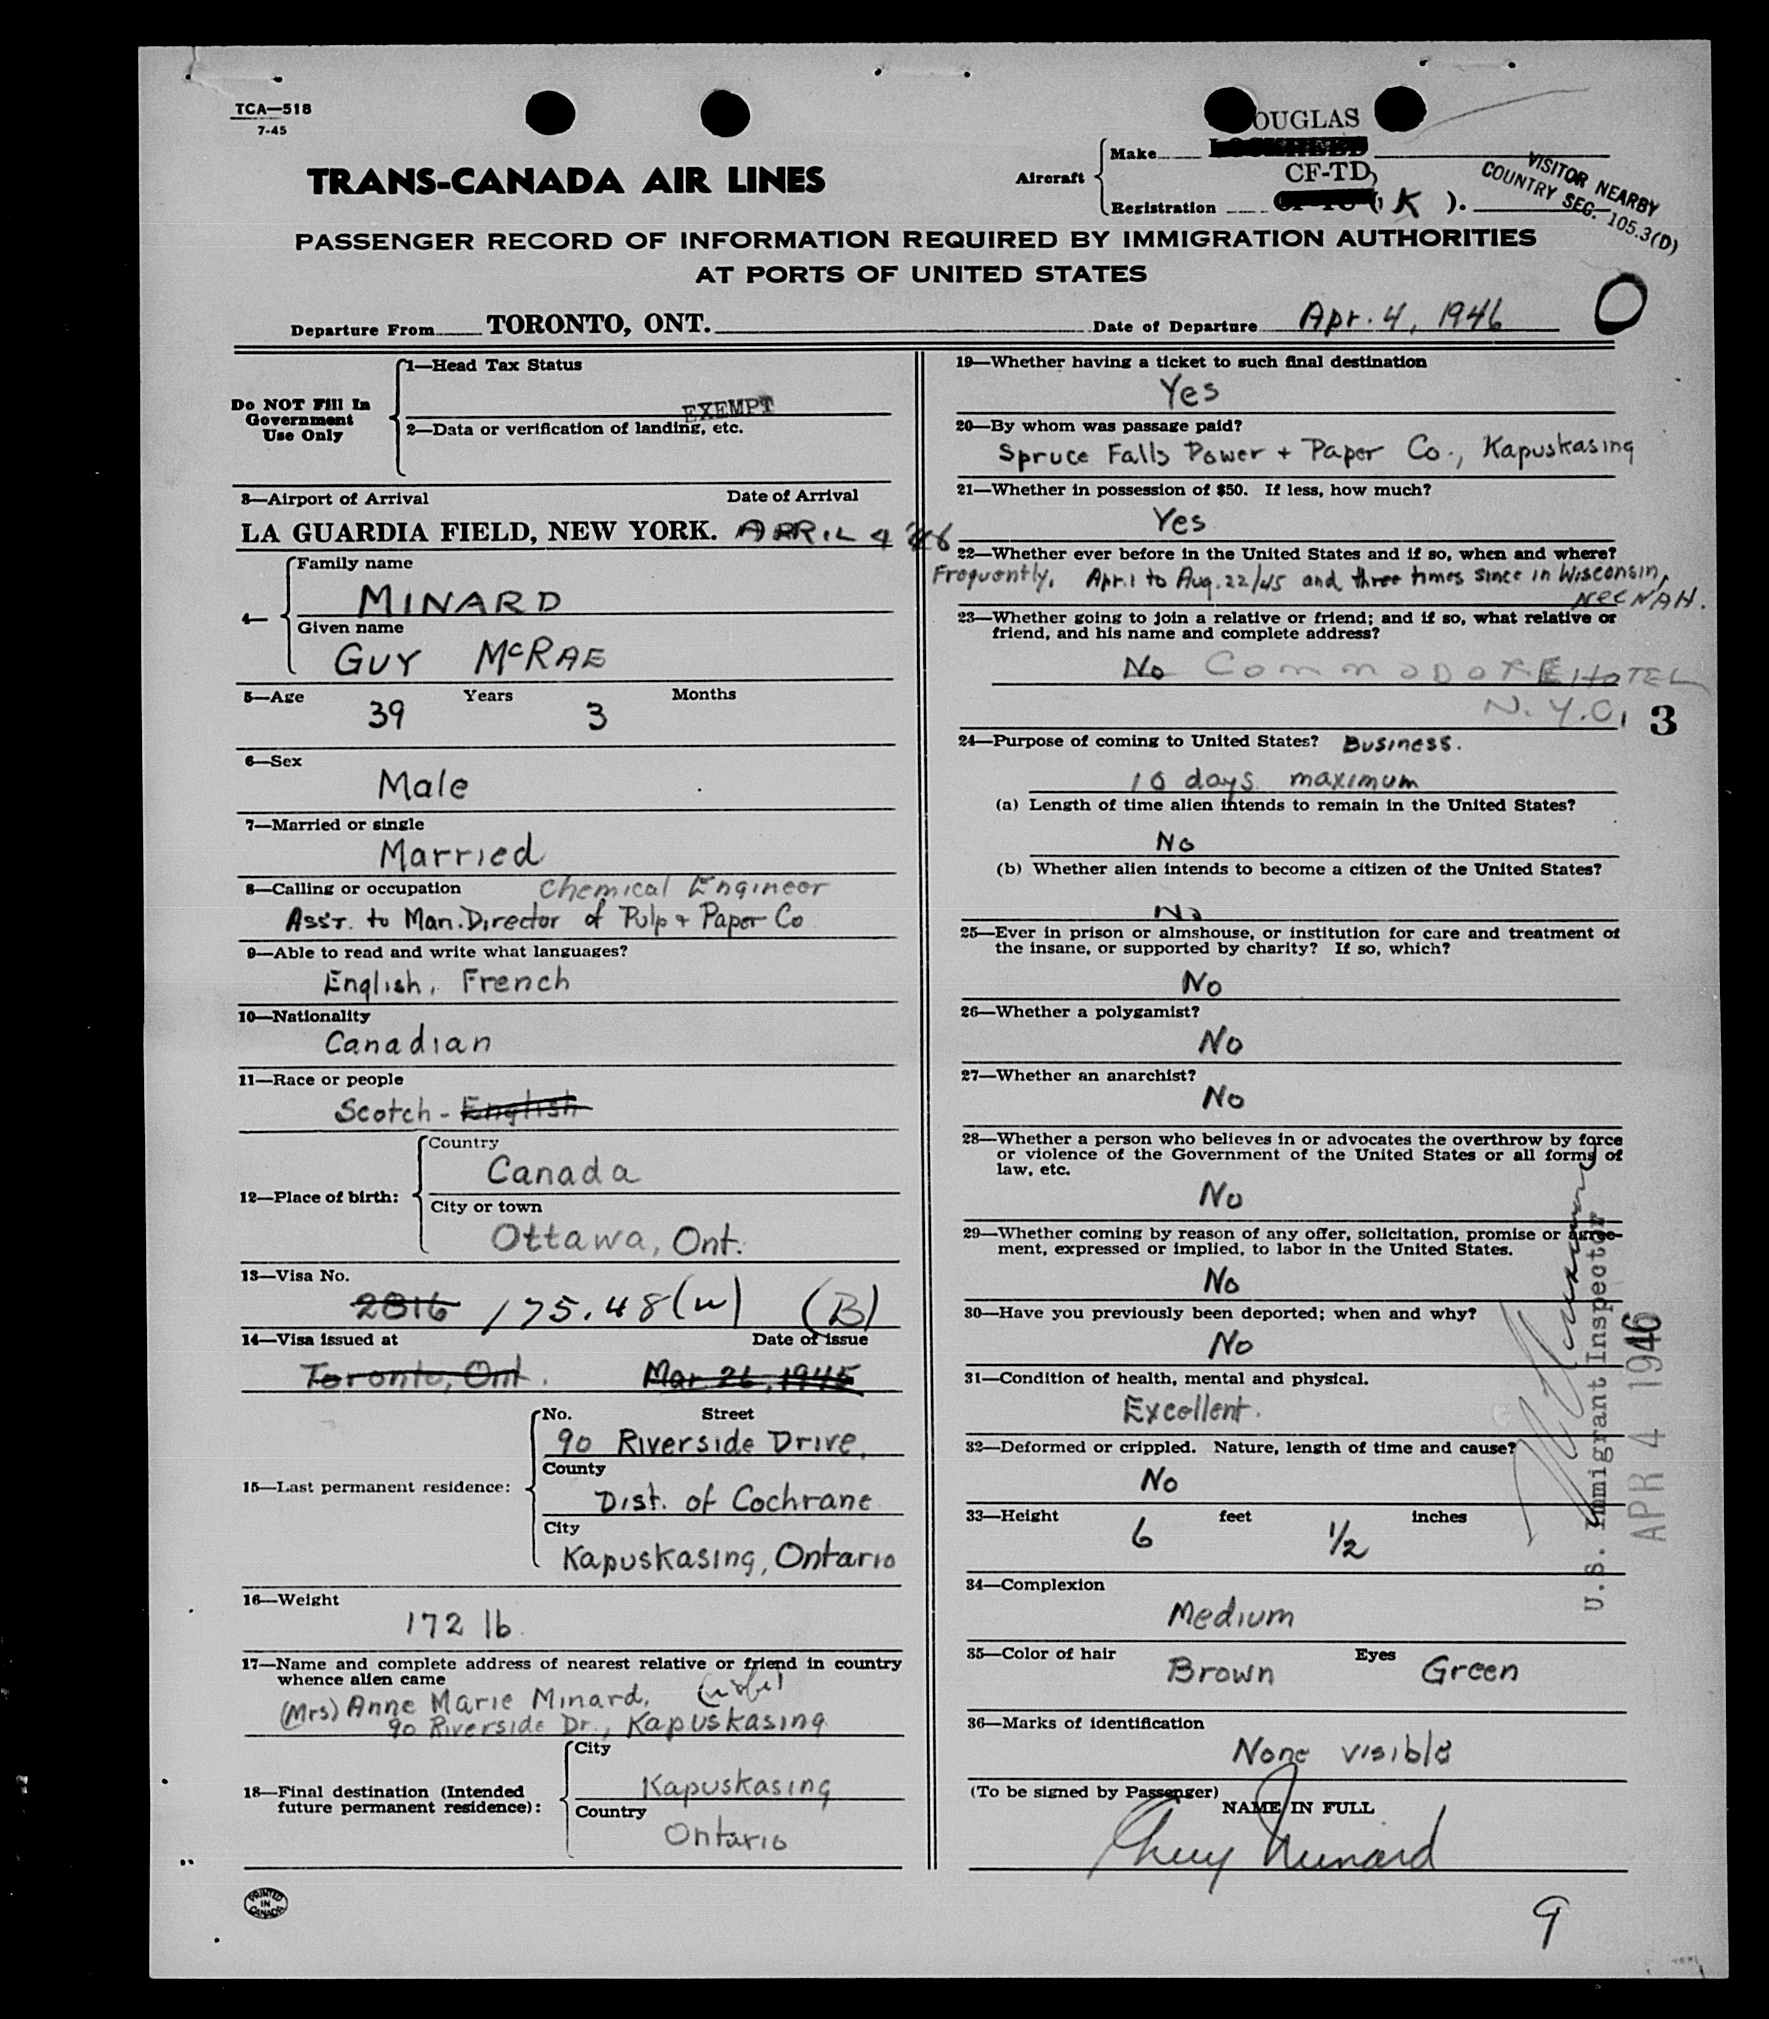 TCA—518
7-45
OUGLAS
Aircraft
Make
LOCKHEED
CF-TD
Registration
( K ).
VISITOR NEARBY
COUNTRY SEC. 105.3(D)
TRANS-CANADA AIR LINES
PASSENGER RECORD OF INFORMATION REQUIRED BY IMMIGRATION AUTHORITIES
AT PORTS OF UNITED STATES
Departure From TORONTO, ONT.
Date of Departure Apr. 4, 1946
O
Do NOT Fill In
Government
Use Only
1—Head Tax Status
EXEMPT
2—Data or verification of landing, etc.
3—Airport of Arrival Date of Arrival
LA GUARDIA FIELD, NEW YORK. APRIL 4 '46
4—
Family name
MINARD
Given name
GUY McRAE
5—Age Years Months
39 3
6—Sex
Male
7—Married or single
Married
8—Calling or occupation Chemical Engineer
Ass't. to Man. Director of Pulp + Paper Co
9—Able to read and write what languages?
English, French
10—Nationality
Canadian
11—Race or people
Scotch - English
12—Place of birth:
Country
Canada
City or town
Ottawa, Ont.
13—Visa No.
2816 175.48(w) (B)
14—Visa issued at Date of issue
Toronto, Ont. Mar 26, 1945
15—Last permanent residence:
No. Street
90 Riverside Drive,
County
Dist. of Cochrane
City
Kapuskasing, Ontario
16—Weight
172 lb.
17—Name and complete address of nearest relative or friend in country
whence alien came
(Mrs) Anne Marie Minard, (wife)
90 Riverside Dr., Kapuskasing
18—Final destination (Intended
future permanent residence):
City
Kapuskasing
Country
Ontario
PRINTED
IN
CANADA
19—Whether having a ticket to such final destination
Yes
20—By whom was passage paid?
Spruce Falls Power + Paper Co., Kapuskasing
21—Whether in possession of $50. If less, how much?
Yes
22—Whether ever before in the United States and if so, when and where?
Frequently. Apr. 1 to Aug. 22/45 and three times since in Wisconsin,
NEENAH.
23—Whether going to join a relative or friend; and if so, what relative or
friend, and his name and complete address?
No COMMODORE HOTEL
N.Y.C. 3
24—Purpose of coming to United States? Business.
10 days maximum
(a) Length of time alien intends to remain in the United States?
No
(b) Whether alien intends to become a citizen of the United States?
No
25—Ever in prison or almshouse, or institution for care and treatment of
the insane, or supported by charity? If so, which?
No
26—Whether a polygamist?
No
27—Whether an anarchist?
No
28—Whether a person who believes in or advocates the overthrow by force
or violence of the Government of the United States or all forms of
law, etc.
No
29—Whether coming by reason of any offer, solicitation, promise or agree-
ment, expressed or implied, to labor in the United States.
No
30—Have you previously been deported; when and why?
No
31—Condition of health, mental and physical.
Excellent.
32—Deformed or crippled. Nature, length of time and cause?
No
33—Height feet inches
6 1/2
34—Complexion
Medium
35—Color of hair Eyes
Brown Green
36—Marks of identification
None visible
(To be signed by Passenger)
NAME IN FULL
Guy Minard
U.S. Immigrant Inspector
APR 4 1946
9